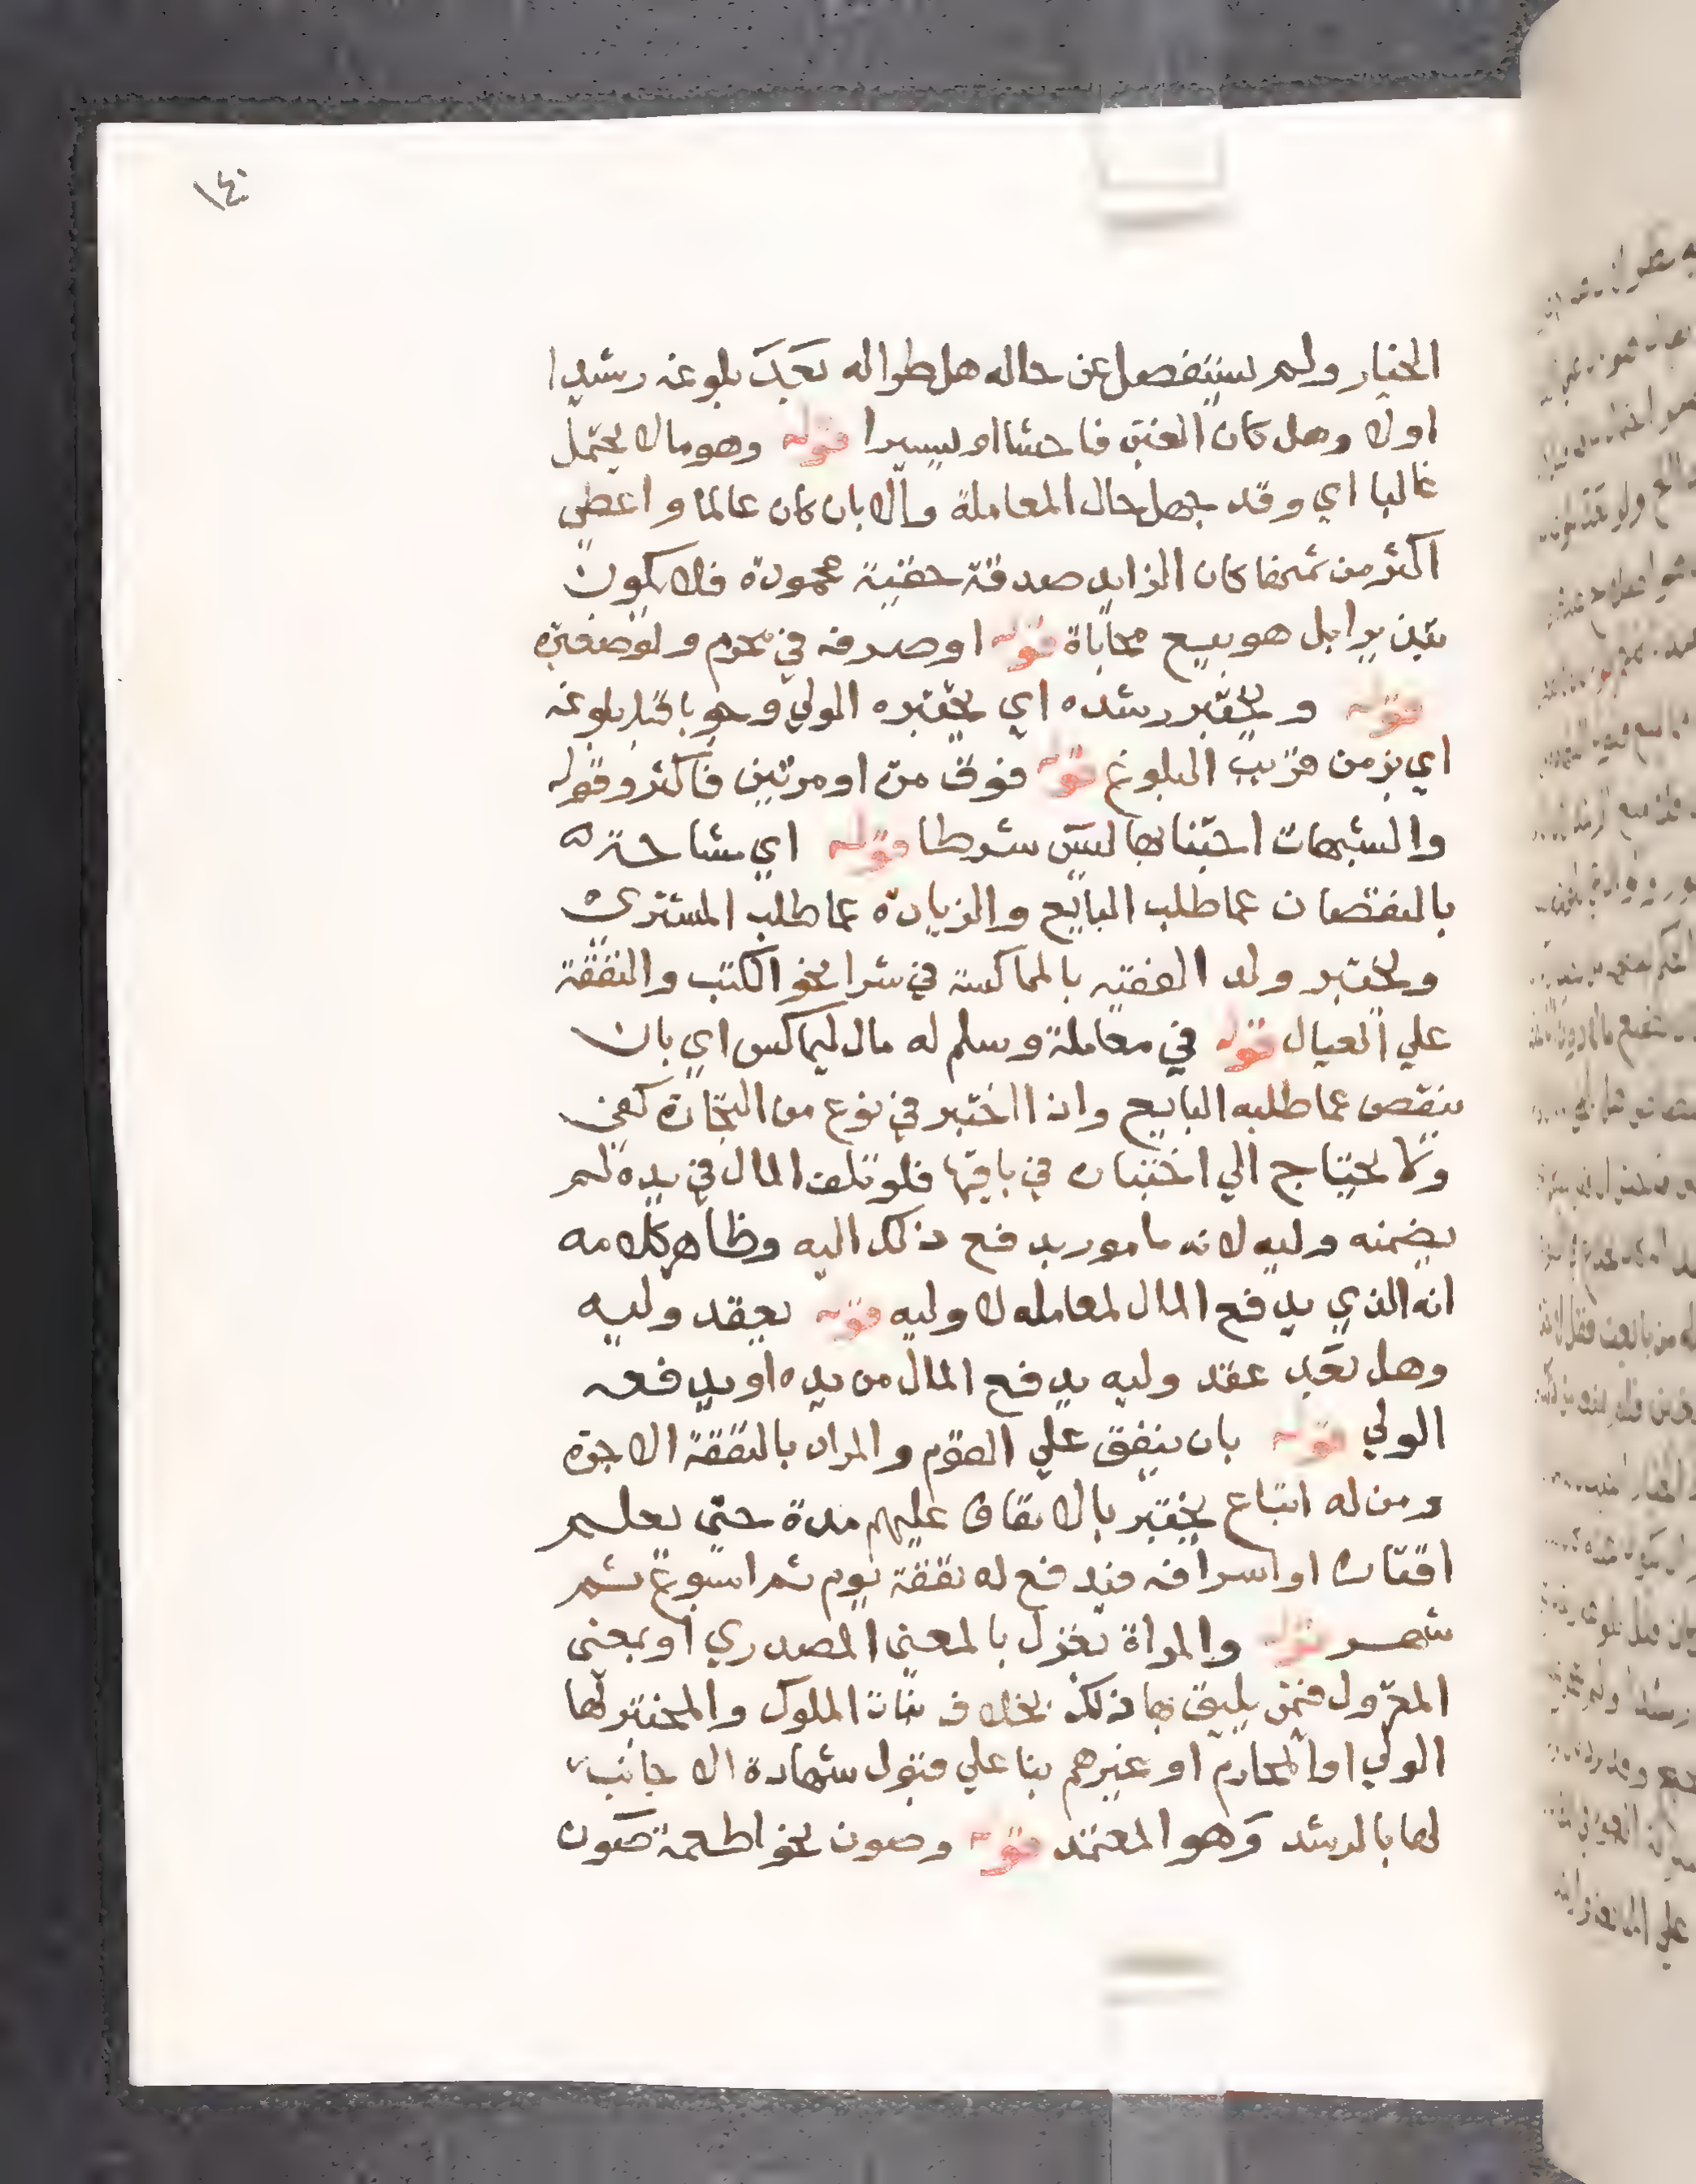 ١٤٠
الخيار ولم يستفصل عن حاله هل طرا له بعد بلوغه رشيدا
اولا وهل كان الغبن فاحشا او يسيرا قوله وهو مالا يحتمل
غالبا اي وقد جهل حال المعاملة والا بان كان عالما واعطي
اكثر من ثمنها كان الزايد صدقة خفية محمودة فلا يكون
تبذيرا بل هو بيع محاباة قوله او صرفه في محرم ولو صغيرة
قوله ويختبر رشده اي يختبره الولي وجوبا قبل بلوغه
اي بزمن قريب البلوغ قوله فوق مرة او مرتين فاكثر وقوله
والشبهات اجتنابها ليس شرطا قوله اي مشاحة
بالنقصان عما طلب البايع والزيادة عما طلب المشتري
ويختبر ولد الفقيه بالمماكسة في شرا نحو الكتب والنفقة
علي العيال قوله في معاملة وسلم له مال ليماكس اي بان
ينقص عما طلبه البايع واذا اختبر في نوع من التجارة كفي
ولا يحتاج الي اختبار في باقيها فلو تلف المال في يده لم
يضمنه وليه لانه مامور بدفع ذلك اليه وظاهر كلامه
انه الذي يدفع المال لمعامله لا وليه قوله يعقد وليه
وهل بعد عقد وليه يدفع المال من يده او يدفعه
الولي قوله بان ينفق علي القوم والمراد بالنفقة الاجرة
ومن له اتباع يختبر بالانفاق عليهم مدة حتي يعلم
اقتاره او اسرافه فيدفع له نفقة يوم ثم اسبوع ثم
شهر قوله والمراة بغزل بالمعني المصدري او بمعني
المغزول فيمن يليق بها ذلك بخلاف بنات الملوك والمختبر لها
الولي او المحارم او غيرهم بنا علي قبول شهادة الاجانب
لها بالرشد وهو المعتمد قوله وصون نحو اطعمة صون